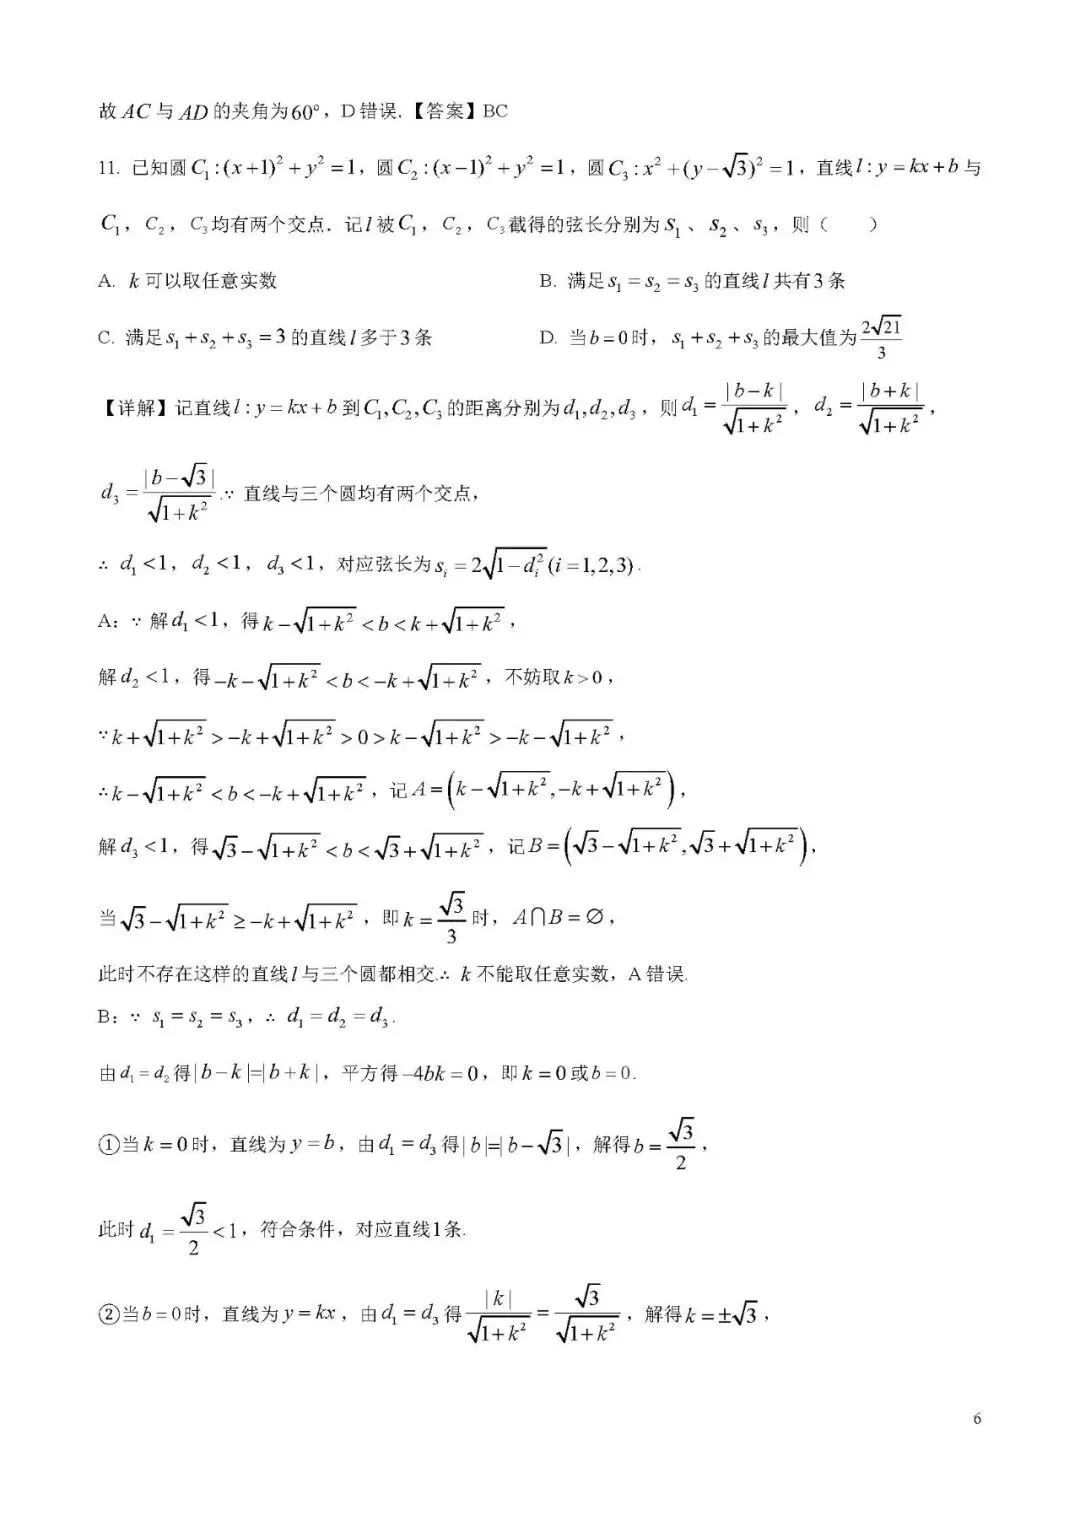 故 AC 与 AD 的夹角为60°，D 错误.【答案】BC
11. 已知圆 C₁:(x+1)²+y²=1，圆 C₂:(x−1)²+y²=1，圆 C₃:x²+(y−√3)²=1，直线 l:y=kx+b 与
C₁，C₂，C₃均有两个交点．记 l 被 C₁，C₂，C₃截得的弦长分别为 s₁、s₂、s₃，则（　　）
A. k 可以取任意实数 B. 满足 s₁=s₂=s₃ 的直线 l 共有3 条
C. 满足 s₁+s₂+s₃=3 的直线 l 多于3 条 D. 当 b=0 时，s₁+s₂+s₃ 的最大值为 2√21/3
【详解】记直线 l:y=kx+b 到 C₁,C₂,C₃ 的距离分别为 d₁,d₂,d₃，则 d₁=|b−k|/√(1+k²)，d₂=|b+k|/√(1+k²)，
d₃=|b−√3|/√(1+k²).∵ 直线与三个圆均有两个交点，
∴ d₁<1，d₂<1，d₃<1，对应弦长为 sᵢ=2√(1−dᵢ²)(i=1,2,3).
A：∵ 解 d₁<1，得 k−√(1+k²)<b<k+√(1+k²)，
解 d₂<1，得 −k−√(1+k²)<b<−k+√(1+k²)，不妨取 k>0，
∵k+√(1+k²)>−k+√(1+k²)>0>k−√(1+k²)>−k−√(1+k²)，
∴k−√(1+k²)<b<−k+√(1+k²)，记 A=(k−√(1+k²),−k+√(1+k²))，
解 d₃<1，得 √3−√(1+k²)<b<√3+√(1+k²)，记 B=(√3−√(1+k²),√3+√(1+k²))，
当 √3−√(1+k²)≥−k+√(1+k²)，即 k=√3/3 时，A∩B=∅，
此时不存在这样的直线 l 与三个圆都相交.∴ k 不能取任意实数，A 错误.
B：∵ s₁=s₂=s₃，∴ d₁=d₂=d₃.
由 d₁=d₂ 得|b−k|=|b+k|，平方得 −4bk=0，即 k=0 或 b=0.
①当 k=0 时，直线为 y=b，由 d₁=d₃ 得|b|=|b−√3|，解得 b=√3/2，
此时 d₁=√3/2<1，符合条件，对应直线1条.
②当 b=0 时，直线为 y=kx，由 d₁=d₃ 得 |k|/√(1+k²)=√3/√(1+k²)，解得 k=±√3，
6